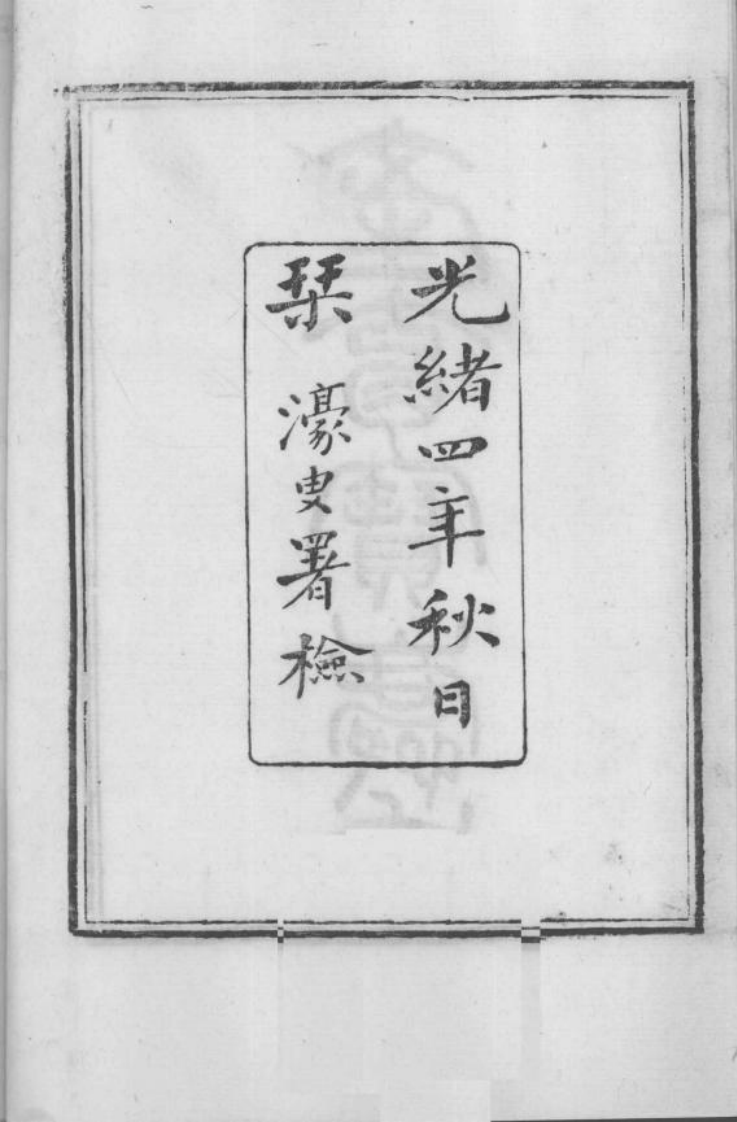 光緒四年秋日
栞 濠叟署檢